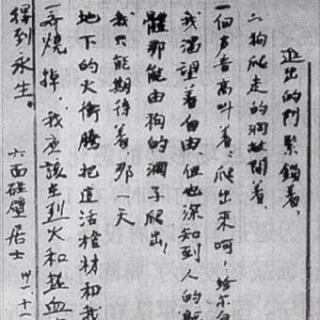 進出的門緊鎖着，
狗爬走的洞敞開着，
一個声音高叫着，爬出來呵，給尔自
我渴望着自由，但也深知到人的軀
體那能由狗的洞子爬出！
我只能期待着，那一天
地下的火衝騰把這活棺材和我
一齊燒掉，我應該在烈火和熱血
得到永生。
六面碰壁居士 卅一.十一